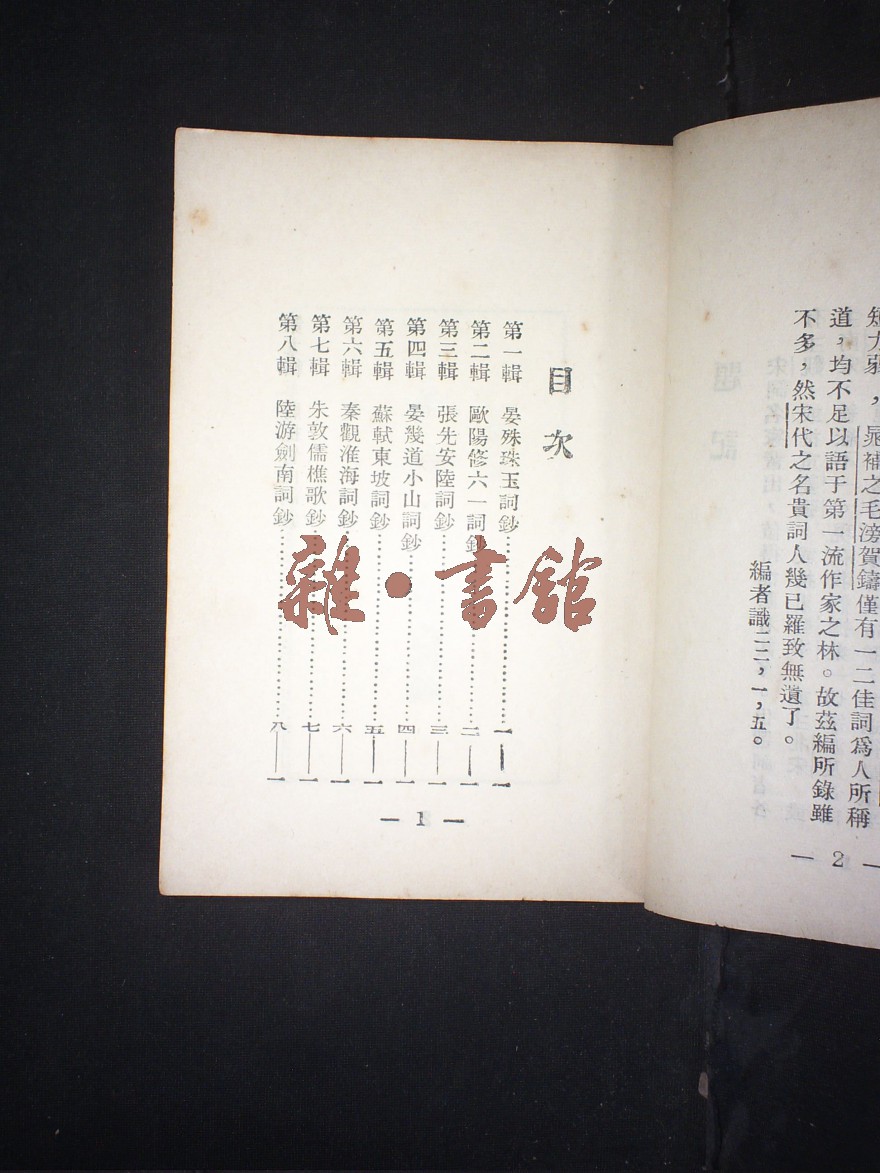 短才弱，晁補之毛滂賀鑄僅有一二佳詞爲人所稱
道，均不足以語于第一流作家之林。故茲編所錄雖
不多，然宋代之名貴詞人幾已羅致無遺了。
編者識二二，一，五。
— 2 —
目次
第一輯 晏殊珠玉詞鈔……一—一
第二輯 歐陽修六一詞鈔……二—一
第三輯 張先安陸詞鈔……三—一
第四輯 晏幾道小山詞鈔……四—一
第五輯 蘇軾東坡詞鈔……五—一
第六輯 秦觀淮海詞鈔……六—一
第七輯 朱敦儒樵歌鈔……七—一
第八輯 陸游劍南詞鈔……八—一
— 1 —
雜·書館